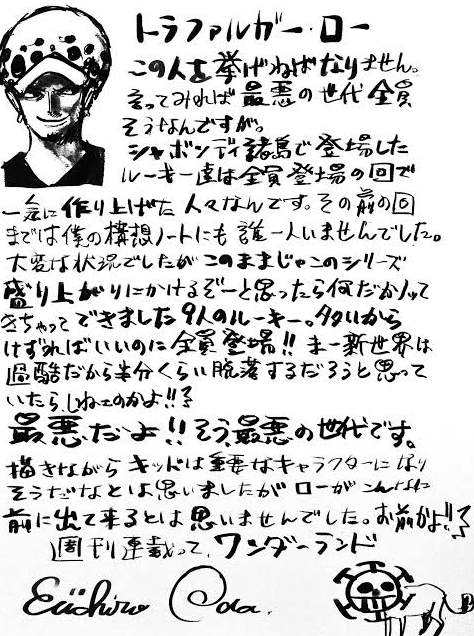 トラファルガー・ロー
この人を挙げねばなりません。
言ってみれば最悪の世代全員
そうなんですが。
シャボンディ諸島で登場した
ルーキー達は全員登場の回で
一気に作り上げた人々なんです。その前の回
までは僕の構想ノートにも誰一人いませんでした。
大変な状況でしたがこのままじゃこのシリーズ
盛り上がりにかけるぞーと思ったら何だかノッて
きちゃってできました9人のルーキー。多いから
けずればいいのに全員登場!! まー新世界は
過酷だから半分くらい脱落するだろうと思って
いたら、しねェのかよ!!?
最悪だよ!! そう、最悪の世代です。
描きながらキッドは重要なキャラクターになり
そうだなとは思いましたがローがこんなに
前に出て来るとは思いませんでした。お前かよ!!?
週刊連載って、ワンダーランド
Eiichiro Oda.